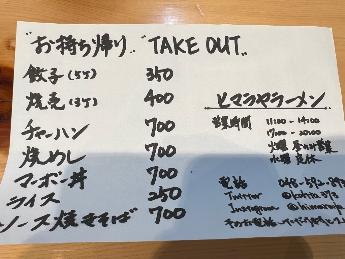 "お持ち帰り" "TAKE OUT"
餃子(5ケ) 350
焼売(3ケ) 400
チャーハン 700
焼めし 700
マーボー丼 700
ライス 250
ソース焼きそば 700
ヒマラヤラーメン
営業時間 11:00 - 14:00
17:00 - 20:00
火曜 昼のみ営業
水曜 定休
電話
Twitter
Instagram